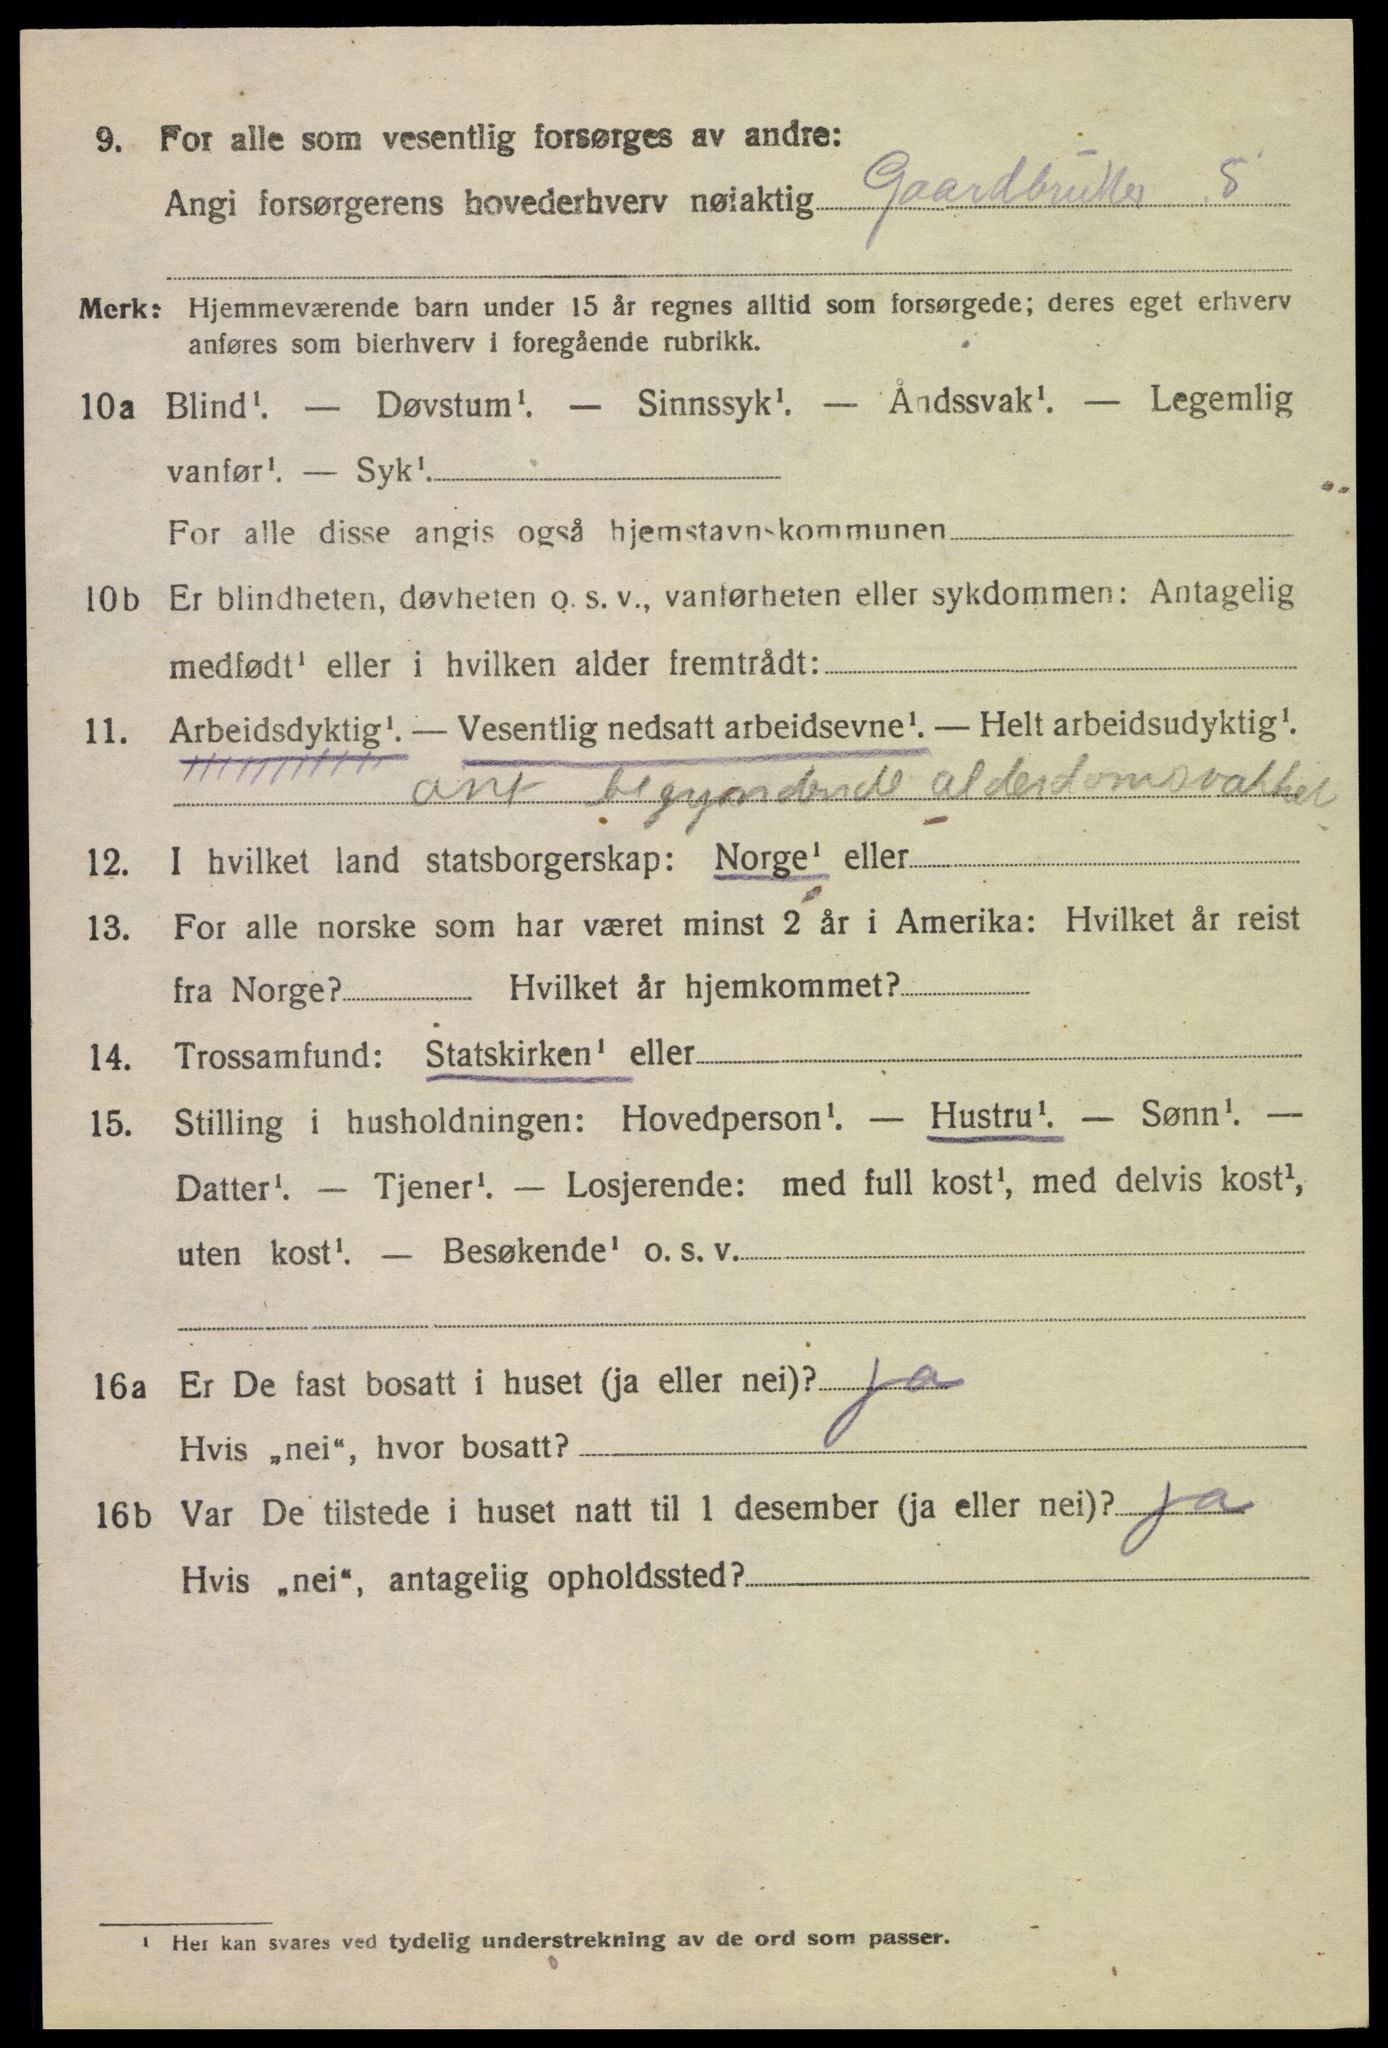 9. For alle som vesentlig forsørges av andre:
Angi forsørgerens hovederhverv nøiaktig Gaardbruker S
Merk: Hjemmeværende barn under 15 år regnes alltid som forsørgede; deres eget erhverv
anføres som bierhverv i foregående rubrikk.
10a Blind¹. — Døvstum¹. — Sinnssyk¹. — Åndssvak¹. — Legemlig
vanfør¹. — Syk¹.
For alle disse angis også hjemstavnskommunen
10b Er blindheten, døvheten o. s. v., vanførheten eller sykdommen: Antagelig
medfødt¹ eller i hvilken alder fremtrådt:
11. Arbeidsdyktig¹. — Vesentlig nedsatt arbeidsevne¹. — Helt arbeidsudyktig¹.
ant begyndende alderdomsvakhet
12. I hvilket land statsborgerskap: Norge¹ eller
13. For alle norske som har været minst 2 år i Amerika: Hvilket år reist
fra Norge? Hvilket år hjemkommet?
14. Trossamfund: Statskirken¹ eller
15. Stilling i husholdningen: Hovedperson¹. — Hustru¹. — Sønn¹. —
Datter¹. — Tjener¹. — Losjerende: med full kost¹, med delvis kost¹,
uten kost¹. — Besøkende¹ o. s. v.
16a Er De fast bosatt i huset (ja eller nei)? ja
Hvis „nei“, hvor bosatt?
16b Var De tilstede i huset natt til 1 desember (ja eller nei)? ja
Hvis „nei“, antagelig opholdssted?
¹ Her kan svares ved tydelig understrekning av de ord som passer.